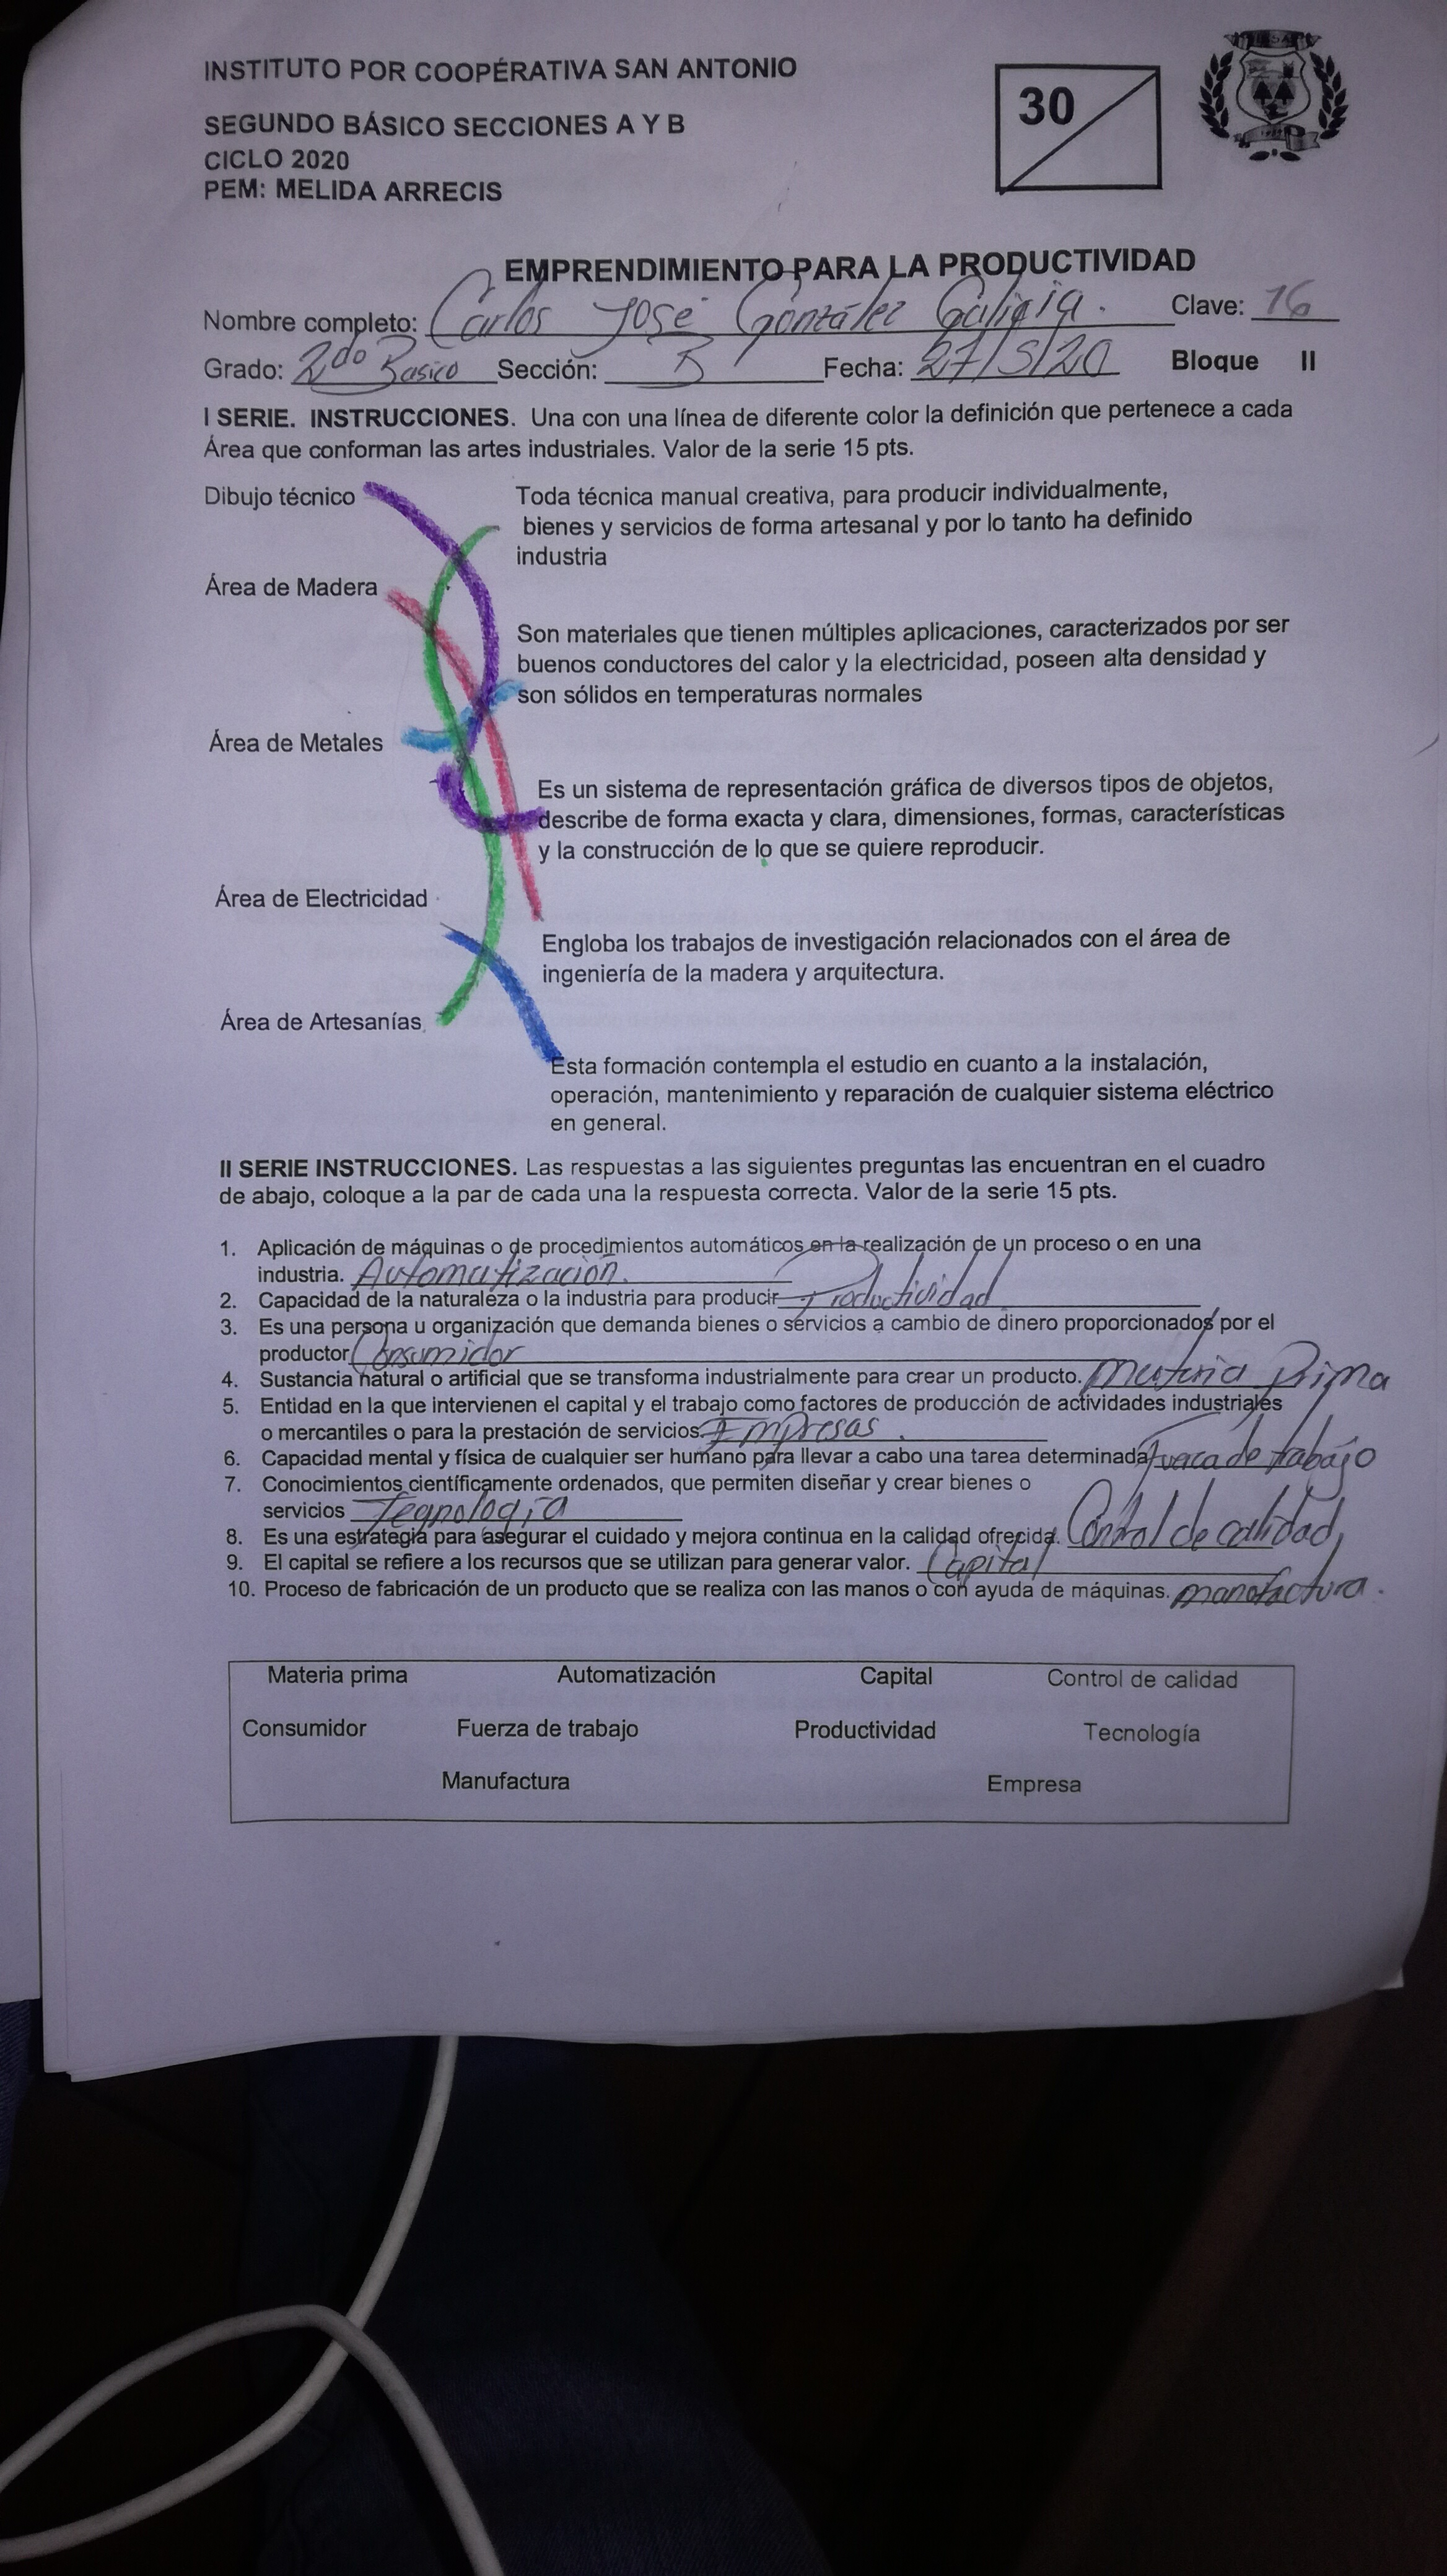 INSTITUTO POR COOPÉRATIVA SAN ANTONIO
30
SEGUNDO BÁSICO SECCIONES A Y B
CICLO 2020
PEM: MELIDA ARRECIS
EMPRENDIMIENTO PARA LA PRODUCTIVIDAD
Nombre completo: Carlos José González Galicia. Clave: 16
Grado: 2do Basico Sección: B Fecha: 27/5/20 Bloque II
I SERIE. INSTRUCCIONES. Una con una línea de diferente color la definición que pertenece a cada
Área que conforman las artes industriales. Valor de la serie 15 pts.
Dibujo técnico
Toda técnica manual creativa, para producir individualmente,
bienes y servicios de forma artesanal y por lo tanto ha definido
industria
Área de Madera
Son materiales que tienen múltiples aplicaciones, caracterizados por ser
buenos conductores del calor y la electricidad, poseen alta densidad y
son sólidos en temperaturas normales
Área de Metales
Es un sistema de representación gráfica de diversos tipos de objetos,
describe de forma exacta y clara, dimensiones, formas, características
y la construcción de lo que se quiere reproducir.
Área de Electricidad
Engloba los trabajos de investigación relacionados con el área de
ingeniería de la madera y arquitectura.
Área de Artesanías
Esta formación contempla el estudio en cuanto a la instalación,
operación, mantenimiento y reparación de cualquier sistema eléctrico
en general.
II SERIE INSTRUCCIONES. Las respuestas a las siguientes preguntas las encuentran en el cuadro
de abajo, coloque a la par de cada una la respuesta correcta. Valor de la serie 15 pts.
1. Aplicación de máquinas o de procedimientos automáticos en la realización de un proceso o en una
industria. Automatización.
2. Capacidad de la naturaleza o la industria para producir Productividad
3. Es una persona u organización que demanda bienes o servicios a cambio de dinero proporcionados por el
productor Consumidor
4. Sustancia natural o artificial que se transforma industrialmente para crear un producto. materia prima
5. Entidad en la que intervienen el capital y el trabajo como factores de producción de actividades industriales
o mercantiles o para la prestación de servicios. Empresas.
6. Capacidad mental y física de cualquier ser humano para llevar a cabo una tarea determinada de trabajo
7. Conocimientos científicamente ordenados, que permiten diseñar y crear bienes o
servicios Tegnologia
8. Es una estrategia para asegurar el cuidado y mejora continua en la calidad ofrecida. Control de calidad,
9. El capital se refiere a los recursos que se utilizan para generar valor. Capital
10. Proceso de fabricación de un producto que se realiza con las manos o con ayuda de máquinas. manofactura.
Materia prima Automatización Capital Control de calidad
Consumidor Fuerza de trabajo Productividad Tecnología
Manufactura Empresa